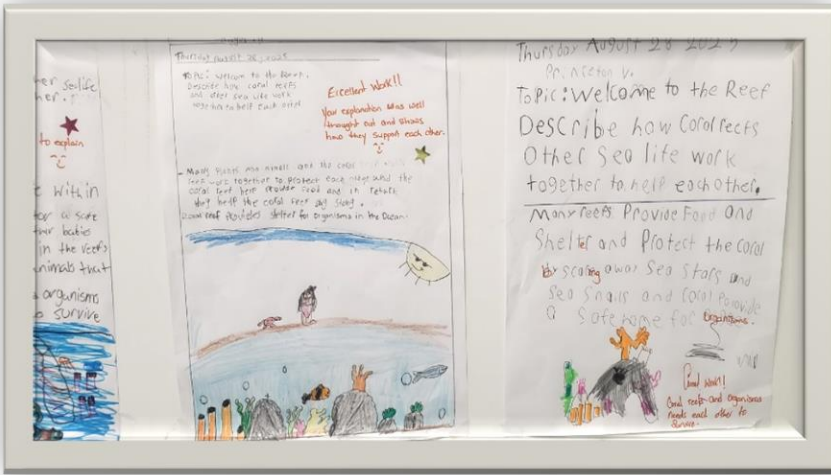 her sealife
her.
to explain
t within
for a safe
their babies
in the reefs
animals that
organisms
survive
Thursday August 28, 2025
Topic: Welcome to the Reef.
Describe how coral reefs
and other sea life work
together to help each other
Excellent Work!!
Your explanation was well
thought out and shows
how they support each other.
- Many Plants and animals and the coral
reef work together to Protect each other and the
coral reef help Provide food and in return
they help the coral reef
coral reef provides shelter for organisms in the Ocean.
Thursday August 28 2025
Princeton V.
Topic: Welcome to the Reef
Describe how Coral reefs
Other Sea life work
together to help each other.
Many reefs Provide Food and
Shelter and Protect the coral
by scaring away Sea Stars and
Sea Snails and Coral Provide
a Safe home for organisms.
Good Work!
Coral reefs and organisms
needs each other to
Survive.